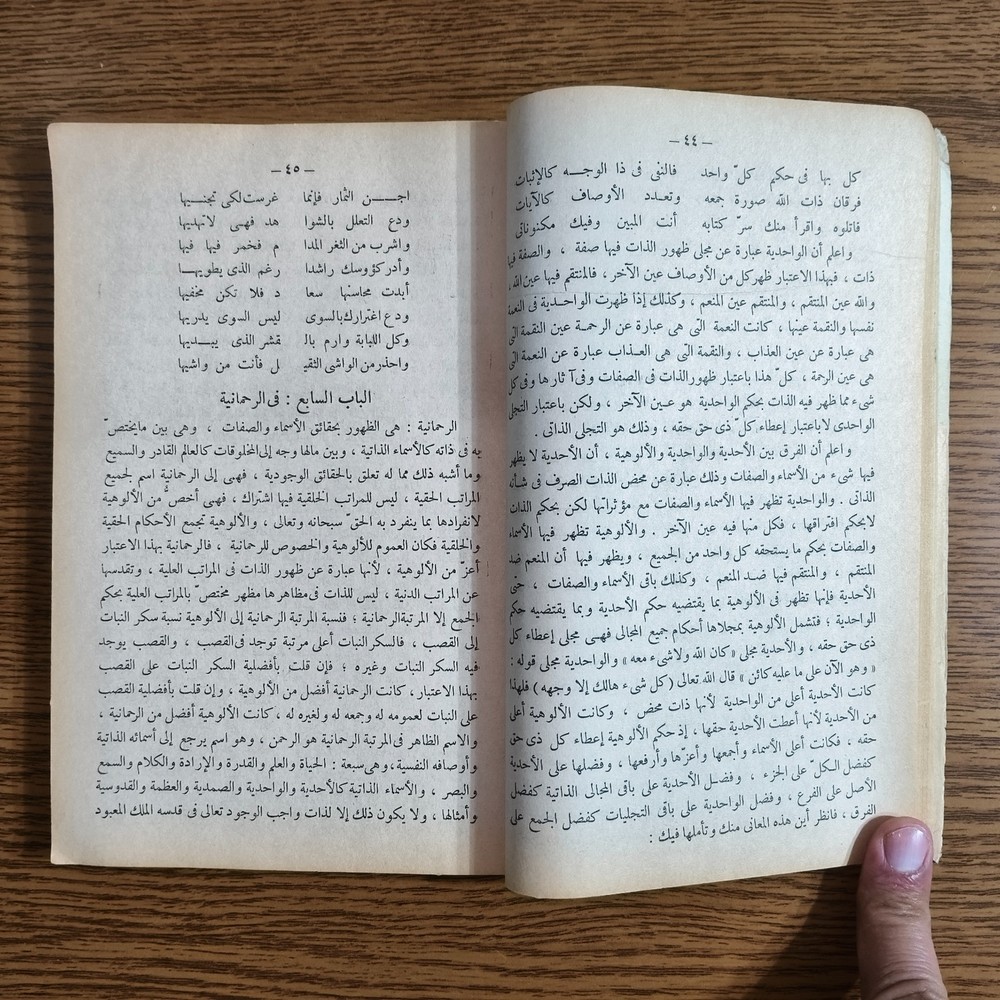 — ٤٤ —
كل بها فى حكم كلّ واحد فالنفى فى ذا الوجــه كالإثبات
فرقان ذات الله صورة جمعه وتعدد الأوصاف كالآيات
فاتلوه واقرأ منك سرّ كتابه أنت المبين وفيك مكنوناتى
واعلم أن الواحدية عبارة عن مجلى ظهور الذات فيها صفة ، والصفة فيها
ذات ، فبهذا الاعتبار ظهر كل من الأوصاف عين الآخر ، فالمنتقم فيها عين الله ،
والله عين المنتقم ، والمنتقم عين المنعم ، وكذلك إذا ظهرت الواحــدية فى النعمة
نفسها والنقمة عينها ، كانت النعمة التى هى عبارة عن الرحمــة عين النقمة التى
هى عبارة عن عين العذاب ، والنقمة التى هى العــذاب عبارة عن النعمة التى
هى عين الرحمة ، كلّ هذا باعتبار ظهور الذات فى الصفات وفى آثارها وفى كل
شىء مما ظهر فيه الذات بحكم الواحدية هو عــين الآخر ، ولكن باعتبار التجلى
الواحدى لا باعتبار إعطاء كلّ ذى حق حقه ، وذلك هو التجلى الذاتى .
واعلم أن الفرق بين الأحدية والواحدية والألوهية ، أن الأحدية لا يظهر
فيها شىء من الأسماء والصفات وذلك عبارة عن محض الذات الصرف فى شــأنه
الذاتى . والواحدية تظهر فيها الأسماء والصفات مع مؤثراتها لكن بحكم الذات
لا بحكم افتراقها ، فكل منها فيه عين الآخر . والألوهية تظهر فيها الأسماء
والصفات بحكم ما يستحقه كل واحد من الجميع ، ويظهر فيها أن المنعم ضد
المنتقم ، والمنتقم فيها ضــد المنعم ، وكذلك باقى الأسماء والصفات ، حتى
الأحدية فإنها تظهر فى الألوهية بما يقتضيه حكم الأحدية وبما يقتضيه حكم
الواحدية ؛ فتشمل الألوهية بمجلاها أحكام جميع المجالى فهــى مجلى إعطاء كل
ذى حق حقه ، والأحدية مجلى « كان الله ولا شىء معه » والواحدية مجلى قوله :
« وهو الآن على ما عليه كائن » قال الله تعالى ( كل شىء هالك إلا وجهه ) فلهذا
كانت الأحدية أعلى من الواحدية لأنها ذات محض ، وكانت الألوهية أعلى
من الأحدية لأنها أعطت الأحدية حقها ، إذ حكم الألوهية إعطاء كل ذى حق
حقه ، فكانت أعلى الأسماء وأجمعها وأعزّها وأرفعها ، وفضلها على الأحدية
كفضل الـكلّ على الجزء ، وفضــل الأحدية على باقى المجالى الذاتية كفضل
الأصل على الفرع ، وفضل الواحدية على باقى التجليات كفضل الجمع على
الفرق ، فانظر أين هذه المعانى منك وتأملها فيك :
— ٤٥ —
اجــــن الثمار فإنما غرست لكى تجنــيها
ودع التعلل بالشوا هد فهــى لا تهديها
واشرب من الثغر المدا م فخمر فيها فيها
وأدر كؤوسك راشدا رغم الذى يطويهــا
أبدت محاسنها سعا د فلا تكن مخفيها
ودع اغترارك بالسوى ليس السوى يدريها
وكل اللبابة وارم بالـ ـقشر الذى يبــديها
واحذر من الواشى الثقيـ ـل فأنت من واشيها
الباب السابع : فى الرحمانية
الرحمانية : هى الظهور بحقائق الأسماء والصفات ، وهى بين ما يختصّ
به فى ذاته كالأسماء الذاتية ، وبين ما لها وجه إلى المخلوقات كالعالم القادر والسميع
وما أشبه ذلك مما له تعلق بالحقائق الوجودية ، فهــى إلى الرحمانية اسم لجميع
المراتب الحقية ، ليس للمراتب الخلقية فيها اشتراك ، فهى أخصّ من الألوهية
لانفرادها بما ينفرد به الحقّ سبحانه وتعالى ، والألوهية تجمع الأحكام الحقية
والخلقية فكان العموم للألوهية والخصوص للرحمانية ، فالرحمانية بهذا الاعتبار
أعزّ من الألوهية ، لأنها عبارة عن ظهور الذات فى المراتب العلية ، وتقدسها
عن المراتب الدنية ، ليس للذات فى مظاهرها مظهر مختصّ بالمراتب العلية بحكم
الجمع إلا المرتبة الرحمانية ؛ فنسبة المرتبة الرحمانية إلى الألوهية نسبة سكر النبات
إلى القصب ، فالسكر النبات أعلى مرتبة توجد فى القصب ، والقصب يوجد
فيه السكر النبات وغيره ؛ فإن قلت بأفضلية السكر النبات على القصب
بهذا الاعتبار ، كانت الرحمانية أفضل من الألوهية ، وإن قلت بأفضلية القصب
على النبات لعمومه له وجمعه له ولغيره له ، كانت الألوهية أفضل من الرحمانية ،
والاسم الظاهر فى المرتبة الرحمانية هو الرحمن ، وهو اسم يرجع إلى أسمائه الذاتية
وأوصافه النفسية ، وهى سبعة : الحياة والعلم والقدرة والإرادة والكلام والسمع
والبصر ، والأسماء الذاتية كالأحدية والواحدية والصمدية والعظمة والقدوسية
وأمثالها ، ولا يكون ذلك إلا لذات واجب الوجود تعالى فى قدسه الملك المعبود